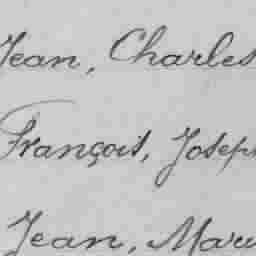 Jean, Charles
François, Joseph
Jean, Mar